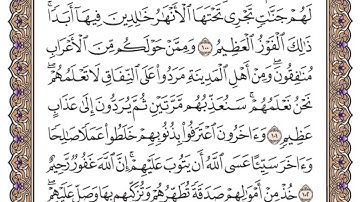 لَهُمْ جَنَّٰتٍ تَجْرِى تَحْتَهَا ٱلْأَنْهَٰرُ خَٰلِدِينَ فِيهَآ أَبَدًا ۚ
ذَٰلِكَ ٱلْفَوْزُ ٱلْعَظِيمُ ١٠٠ وَمِمَّنْ حَوْلَكُم مِّنَ ٱلْأَعْرَابِ
مُنَٰفِقُونَ ۖ وَمِنْ أَهْلِ ٱلْمَدِينَةِ مَرَدُوا۟ عَلَى ٱلنِّفَاقِ لَا تَعْلَمُهُمْ ۖ
نَحْنُ نَعْلَمُهُمْ ۚ سَنُعَذِّبُهُم مَّرَّتَيْنِ ثُمَّ يُرَدُّونَ إِلَىٰ عَذَابٍ
عَظِيمٍ ١٠١ وَءَاخَرُونَ ٱعْتَرَفُوا۟ بِذُنُوبِهِمْ خَلَطُوا۟ عَمَلًا صَٰلِحًا
وَءَاخَرَ سَيِّئًا عَسَى ٱللَّهُ أَن يَتُوبَ عَلَيْهِمْ ۚ إِنَّ ٱللَّهَ غَفُورٌ رَّحِيمٌ
١٠٢ خُذْ مِنْ أَمْوَٰلِهِمْ صَدَقَةً تُطَهِّرُهُمْ وَتُزَكِّيهِم بِهَا وَصَلِّ عَلَيْهِمْ ۖ